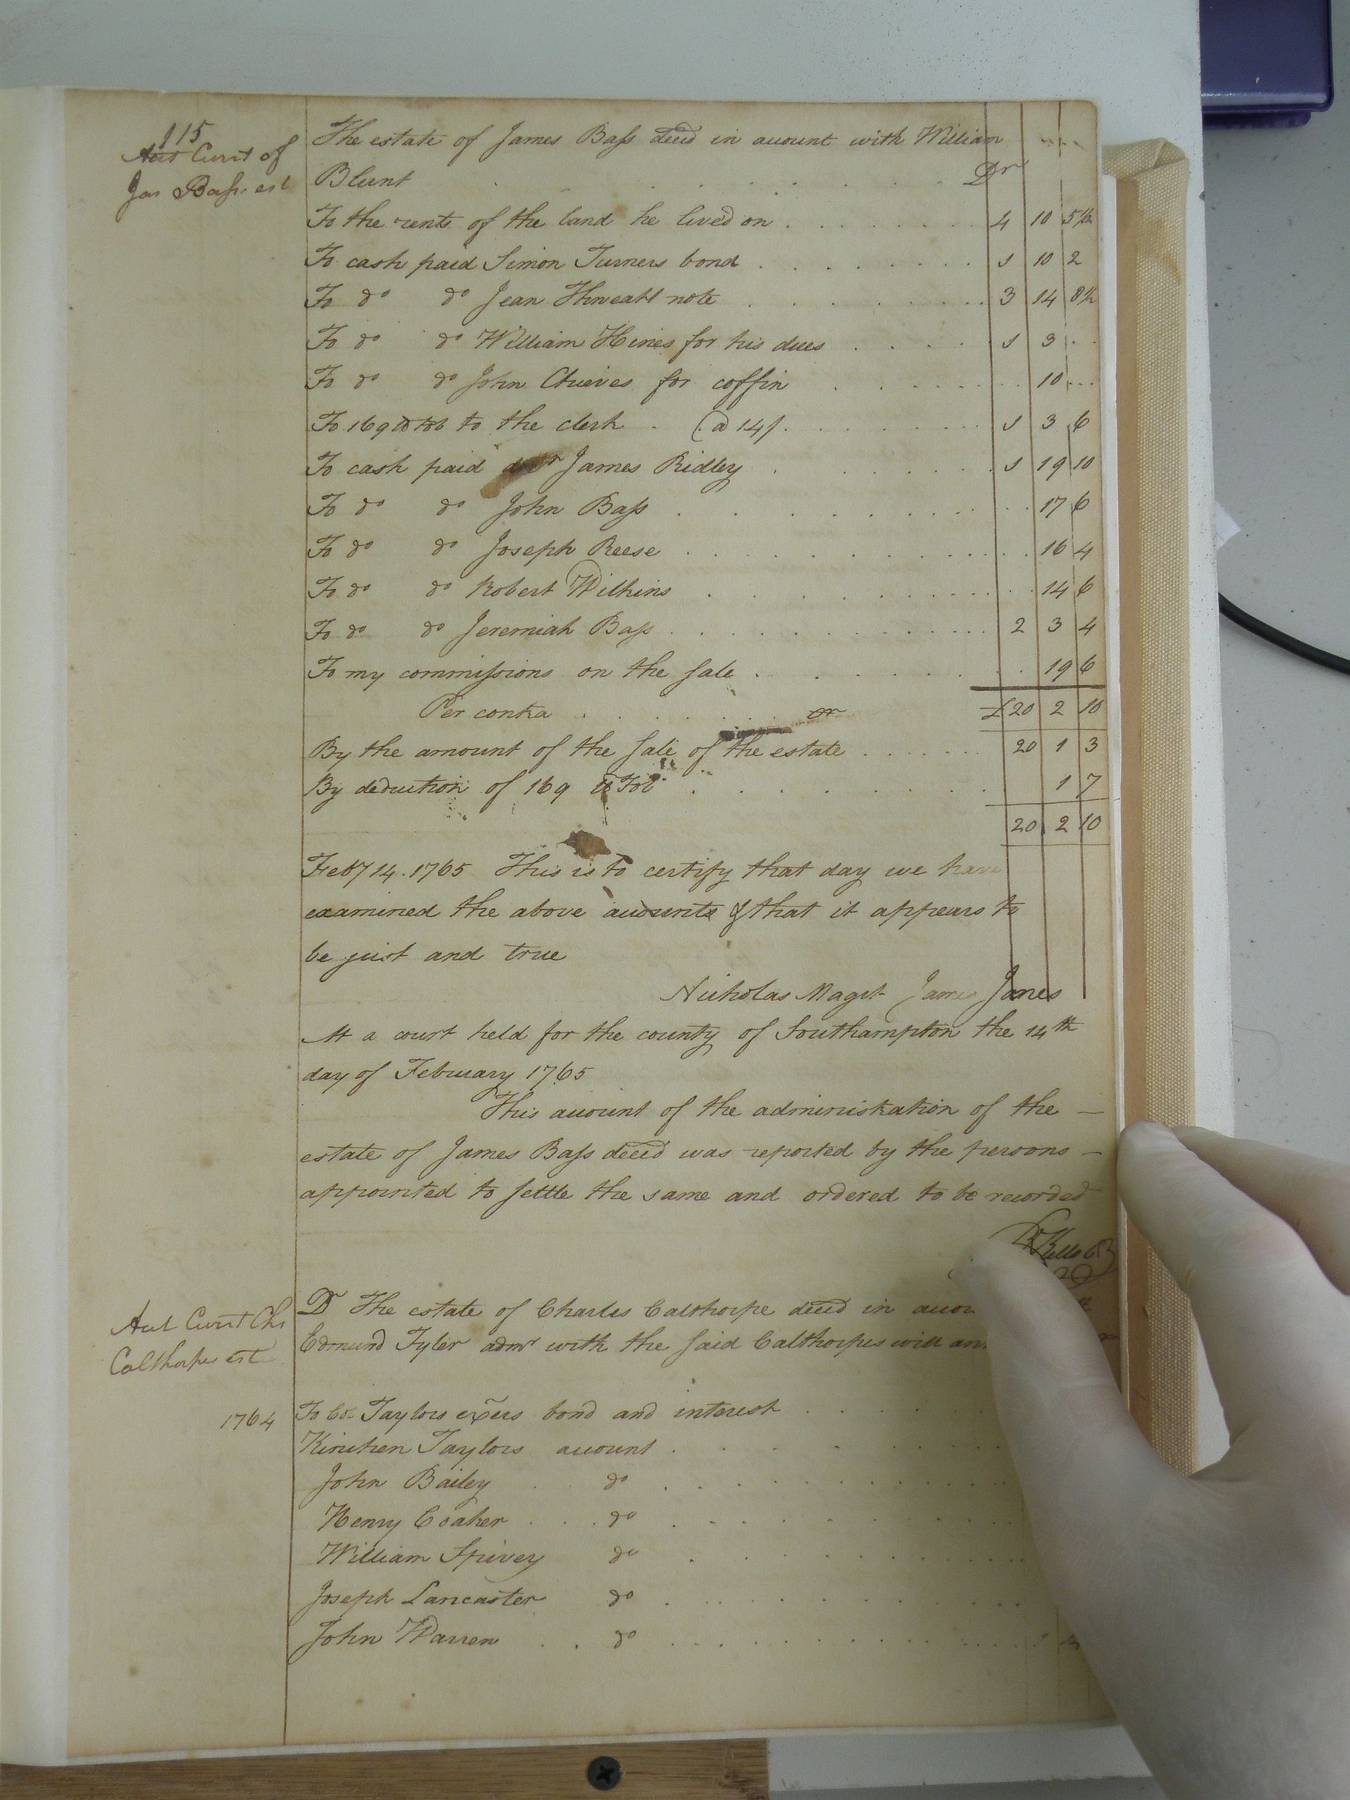 115
Act Curr't of
Jas Bass est
The estate of James Bass decd in account with William
Blunt Dr
To the rents of the land he lived on 4 10 5½
To cash paid Simon Turners bond 1 10 2
To do do Jean Threatt note 3 14 8½
To do do William Hines for his dues 1 3
To do do John Chieves for coffin 10
To 169 lb tob to the clerk @ 14/ 1 3 6
To cash paid James Ridley 1 19 10
To do do John Bass 17 6
To do do Joseph Reese 16 4
To do do Robert Wilkins 14 6
To do do Jeremiah Bass 2 3 4
To my commissions on the sale 19 6
Per contra Cr £20 2 10
By the amount of the sale of the estate 20 1 3
By deduction of 169 lb Tob 1 7
20 2 10
Feby 14. 1765 This is to certify that day we have
examined the above accounts & that it appears to
be just and true
Nicholas Maget James Jones
At a court held for the county of Southampton the 14th
day of February 1765
This account of the administration of the
estate of James Bass decd was reported by the persons
appointed to settle the same and ordered to be recorded
Act Curr't Chs
Calthorpes est
Dr The estate of Charles Calthorpe decd in
Edmund Tyler admr with the said Calthorpes will
1764
To Taylors exers bond and interest
Kinchen Taylors account
John Bailey do
Henry Coaker do
William Spivey do
Joseph Lancaster do
John Warren do